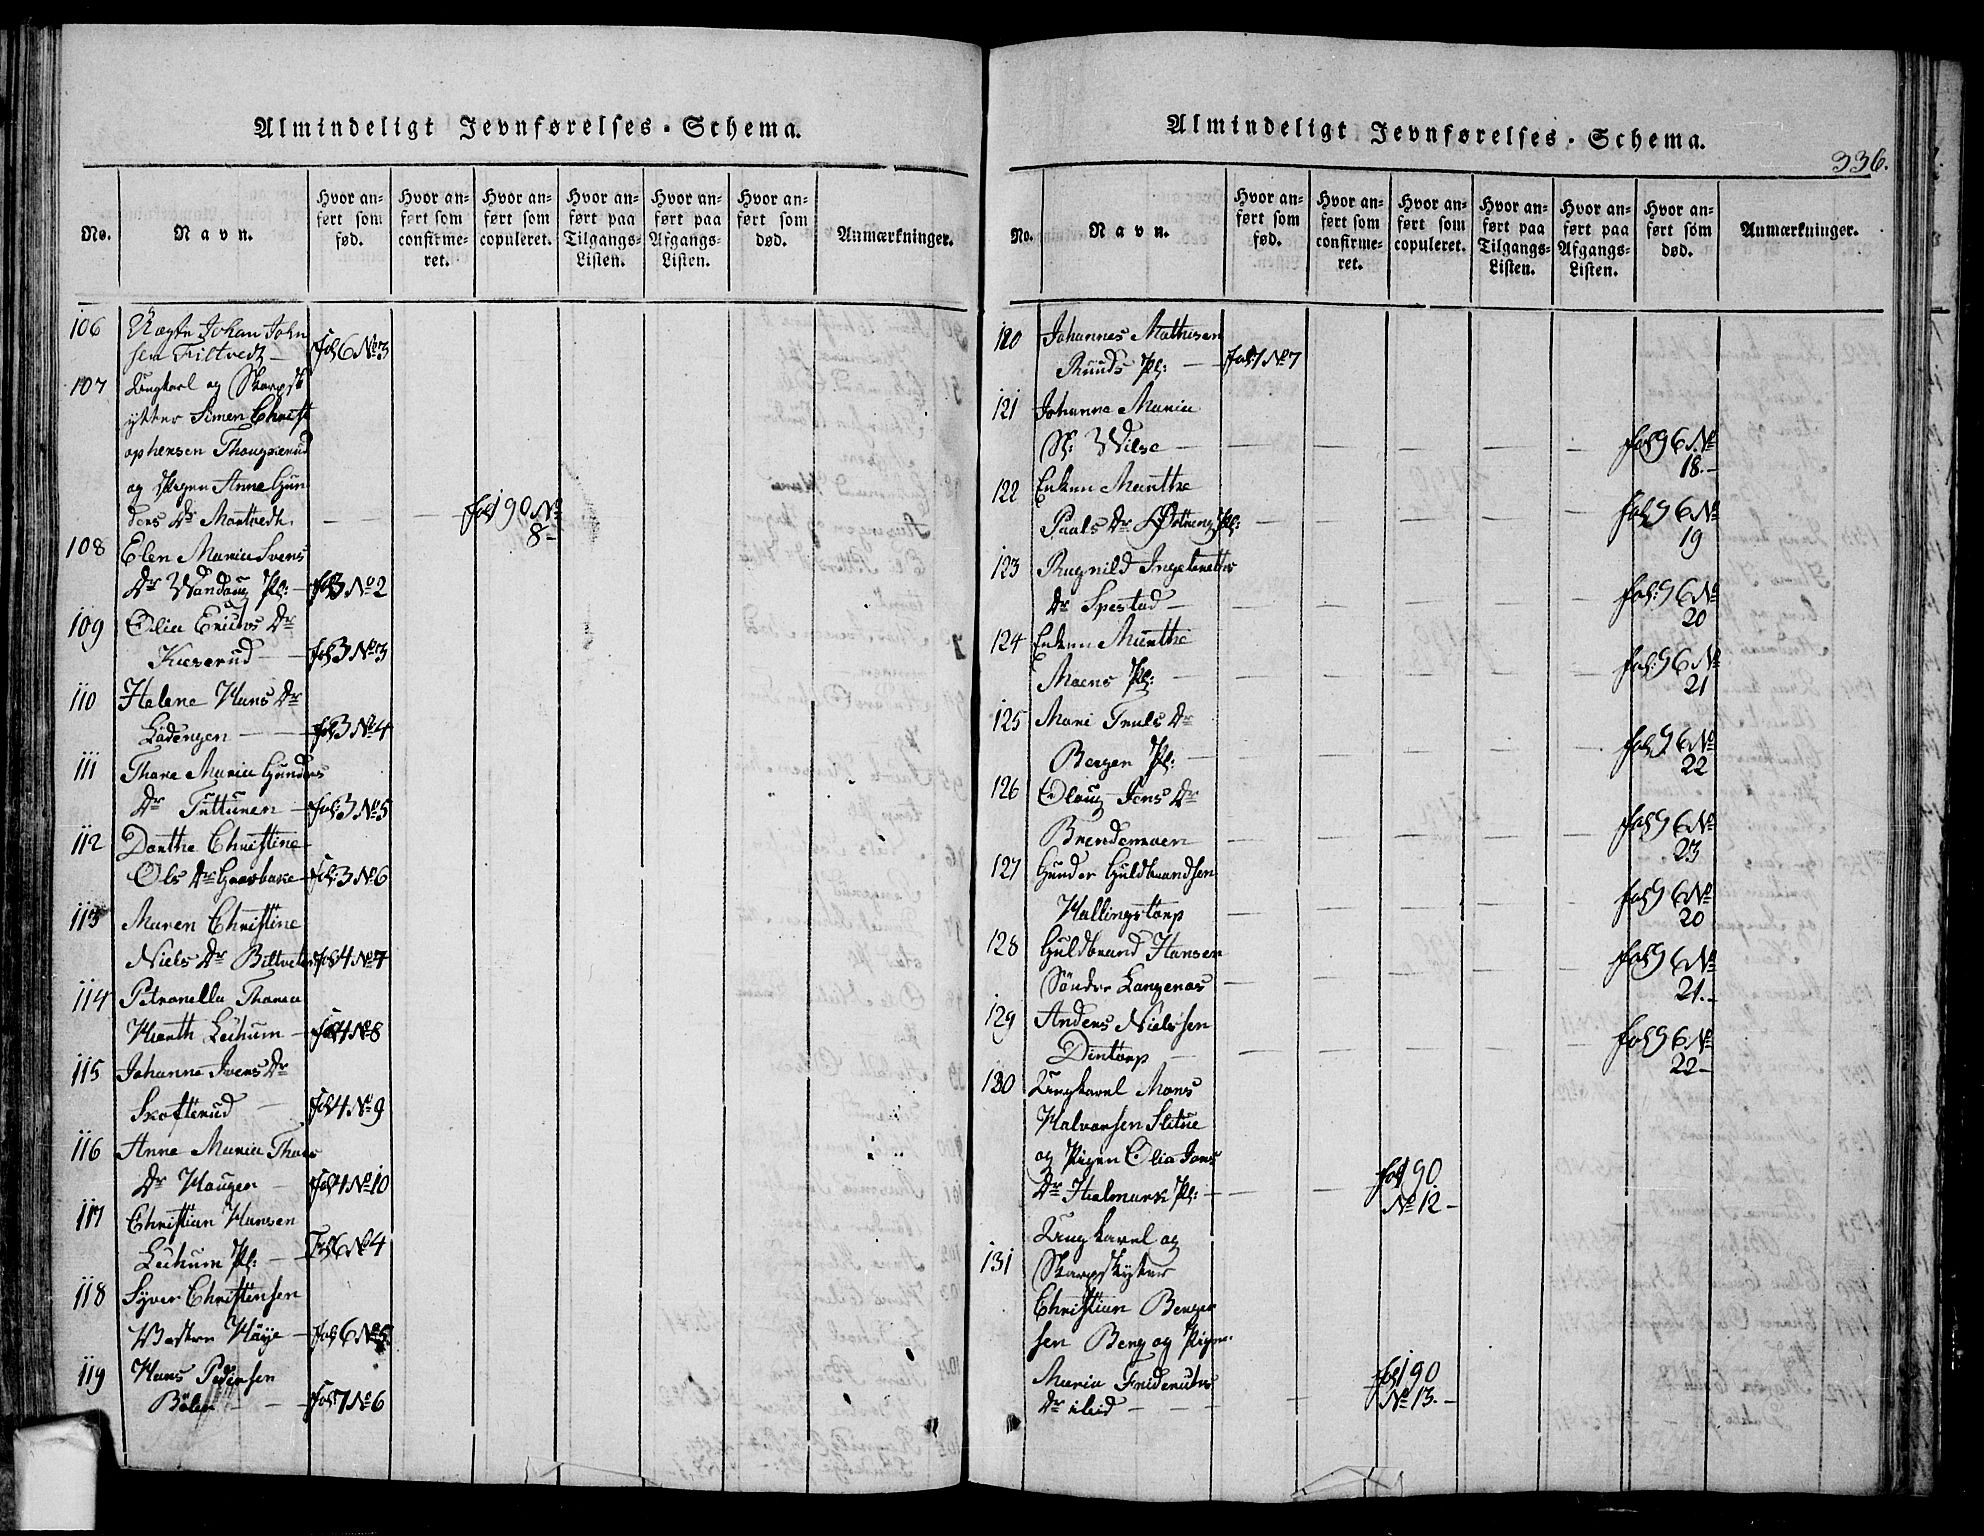 Almindeligt Jevnførelses-Schema.
No.
Navn.
Hvor an-
ført som
fød.
Hvor an-
ført som
confirme-
ret.
Hvor an-
ført som
copuleret.
Hvor an-
ført paa
Tilgangs-
Listen.
Hvor an-
ført paa
Afgangs-
Listen.
Hvor an-
ført som
død.
Anmærkninger.
106 Uægte Johan John
sen Filtvedt — Fol 6 No 3
107 Ungkarl og Skarpsk
ytter Simen Christ
ophersen
og Pigen Anne Gun
ders Dr — — — fol 90 No
8 —
108 Elen Maria Svens
Dr Pl: — fol 3 No 2
109 Olia Erichs Dr
— fol 3 No 3
110 Helene Hans Dr
— fol 3 No 4
111 Thare Maria Gunders
Dr Tuttunen — fol: 3 No 5
112 Dorthe Christine
Ols Dr — fol 3 No 6
113 Maren Christine
Niels Dr fol 4 No 7
114 Petronella Tharea
— fol 4 No 8
115 Johanne Ivers Dr
Skofterud — fol 4 No 9
116 Anne Maria Thors
Dr Hauger — fol 4 No 10
117 Christian Hansen
Pl: — Fol 6 No 4
118 Syver Christensen
— fol 6 No 5
119 Hans Pedersen
Böler — fol 7 No 6
Almindeligt Jevnførelses-Schema.
336.
No.
Navn.
Hvor an-
ført som
fød.
Hvor an-
ført som
confirme-
ret.
Hvor an-
ført som
copuleret.
Hvor an-
ført paa
Tilgangs-
Listen.
Hvor an-
ført paa
Afgangs-
Listen.
Hvor an-
ført som
død.
Anmærkninger.
120 Johannes Mathisen
Ruuds Pl: — fol 7 No 7
121 Johanne Maria
— fol 96 No
18. —
122 Enken Marthe
Paals Dr Pl: — fol 96 No
19
123 Ragnild Ingebreths
Dr Spestad — fol: 96 No
20
124 Enken Marthe
Moens Pl: — fol: 96 No
21
125 Mari Truls Dr
Bergen Pl: — fol 96 No
22
126 Olaug Jens Dr
Brendemoen — fol 96 No
23
127 Gunder Guldbrandsen
Hallingstorp — fol 96 No
20
128 Guldbrand Hansen
Söndre Langenæs — fol 96 No
21. —
129 Anders Nielssen
Dintorp — fol 96 No
22 —
130 Ungkarl Mons
Halvorsen
og Pigen Olia Jens
Dr Pl: — fol 90
No 12 —
Ungkarl og
131 Skarpskytter
Christian Berger
sen Berg og Pigen
Maria Friderichs
Dr ibid — — — fol 90
No 13. —